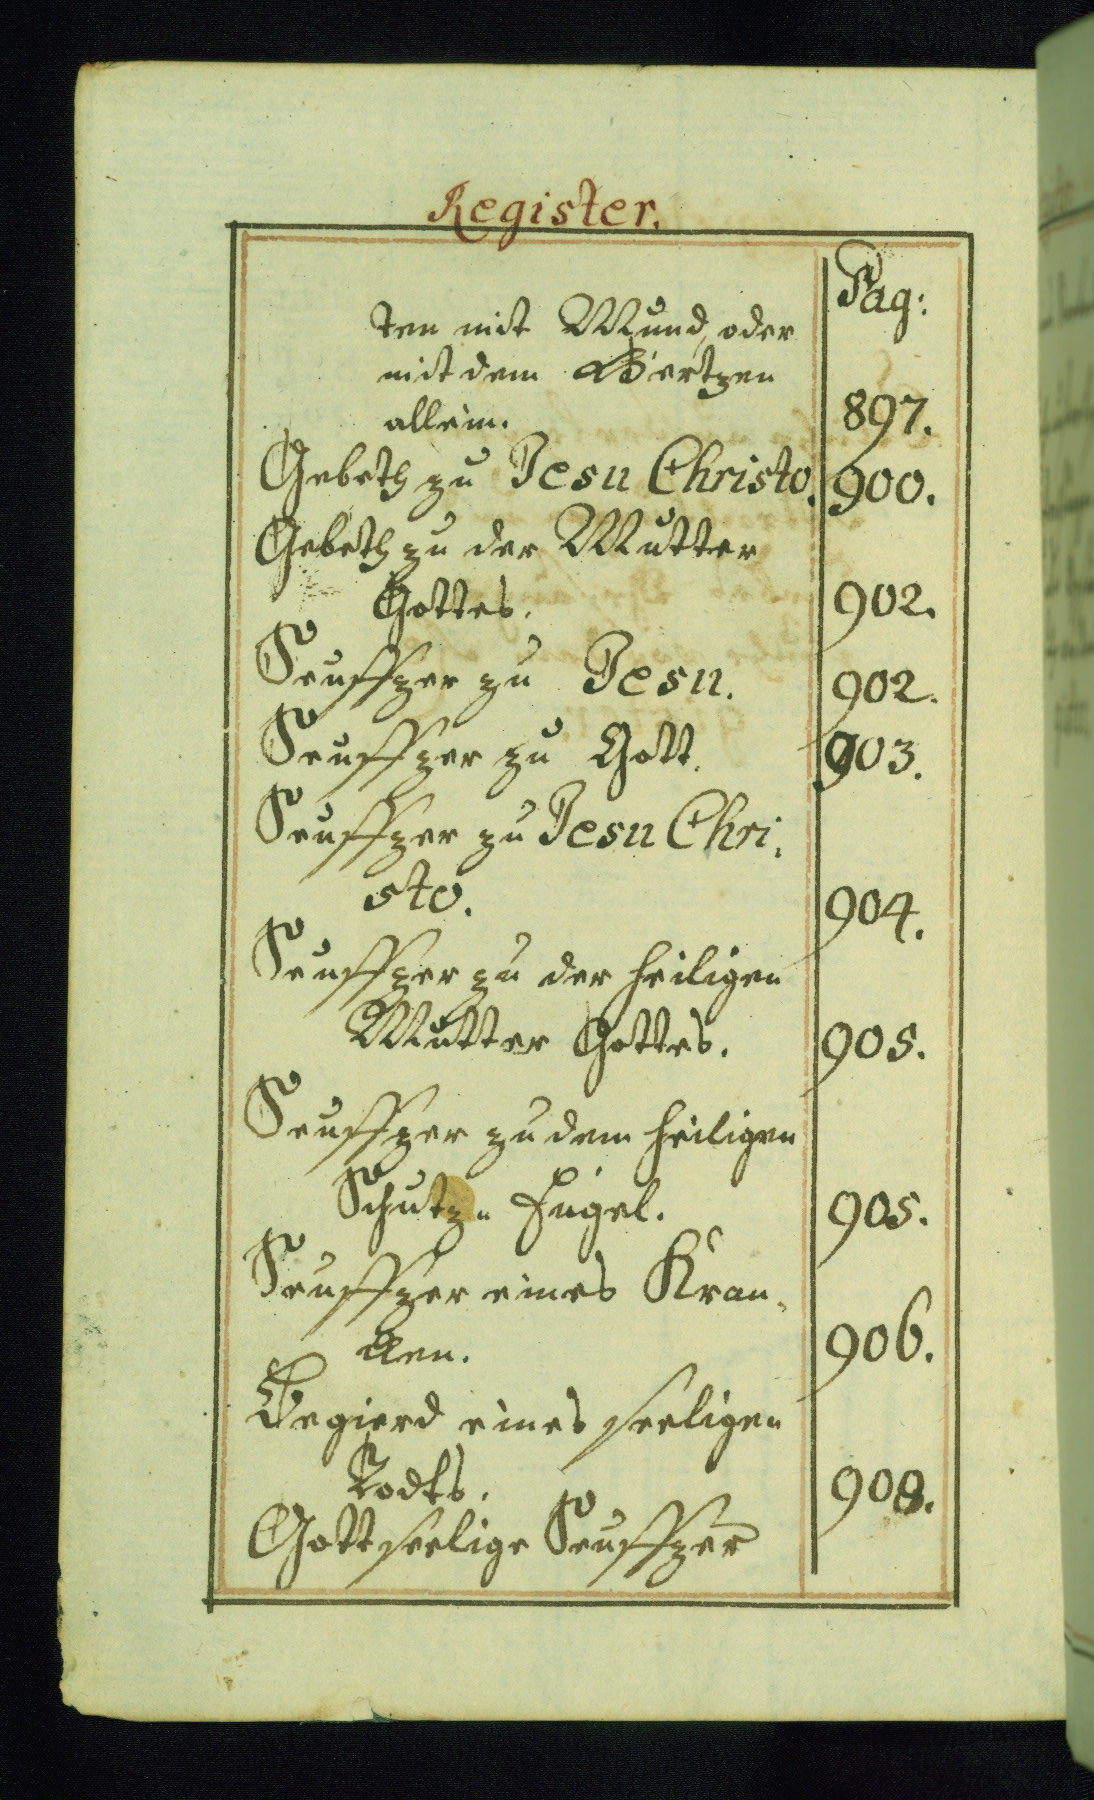 Register.
Pag:
ten mit Mund, oder
mit dem Hertzen
allein. 897.
Gebeth zu Jesu Christo. 900.
Gebeth zu der Mutter
Gottes. 902.
Seuffzer zu Jesu. 902.
Seuffzer zu Gott. 903.
Seuffzer zu Jesu Chri„
sto. 904.
Seuffzer zu der heiligen
Mutter Gottes. 905.
Seuffzer zu dem heiligen
Schutz„ Engel. 905.
Seuffzer eines Kran„
cken. 906.
Begierd eines seeligen
Todts. 908.
Gottseelige Seuffzer